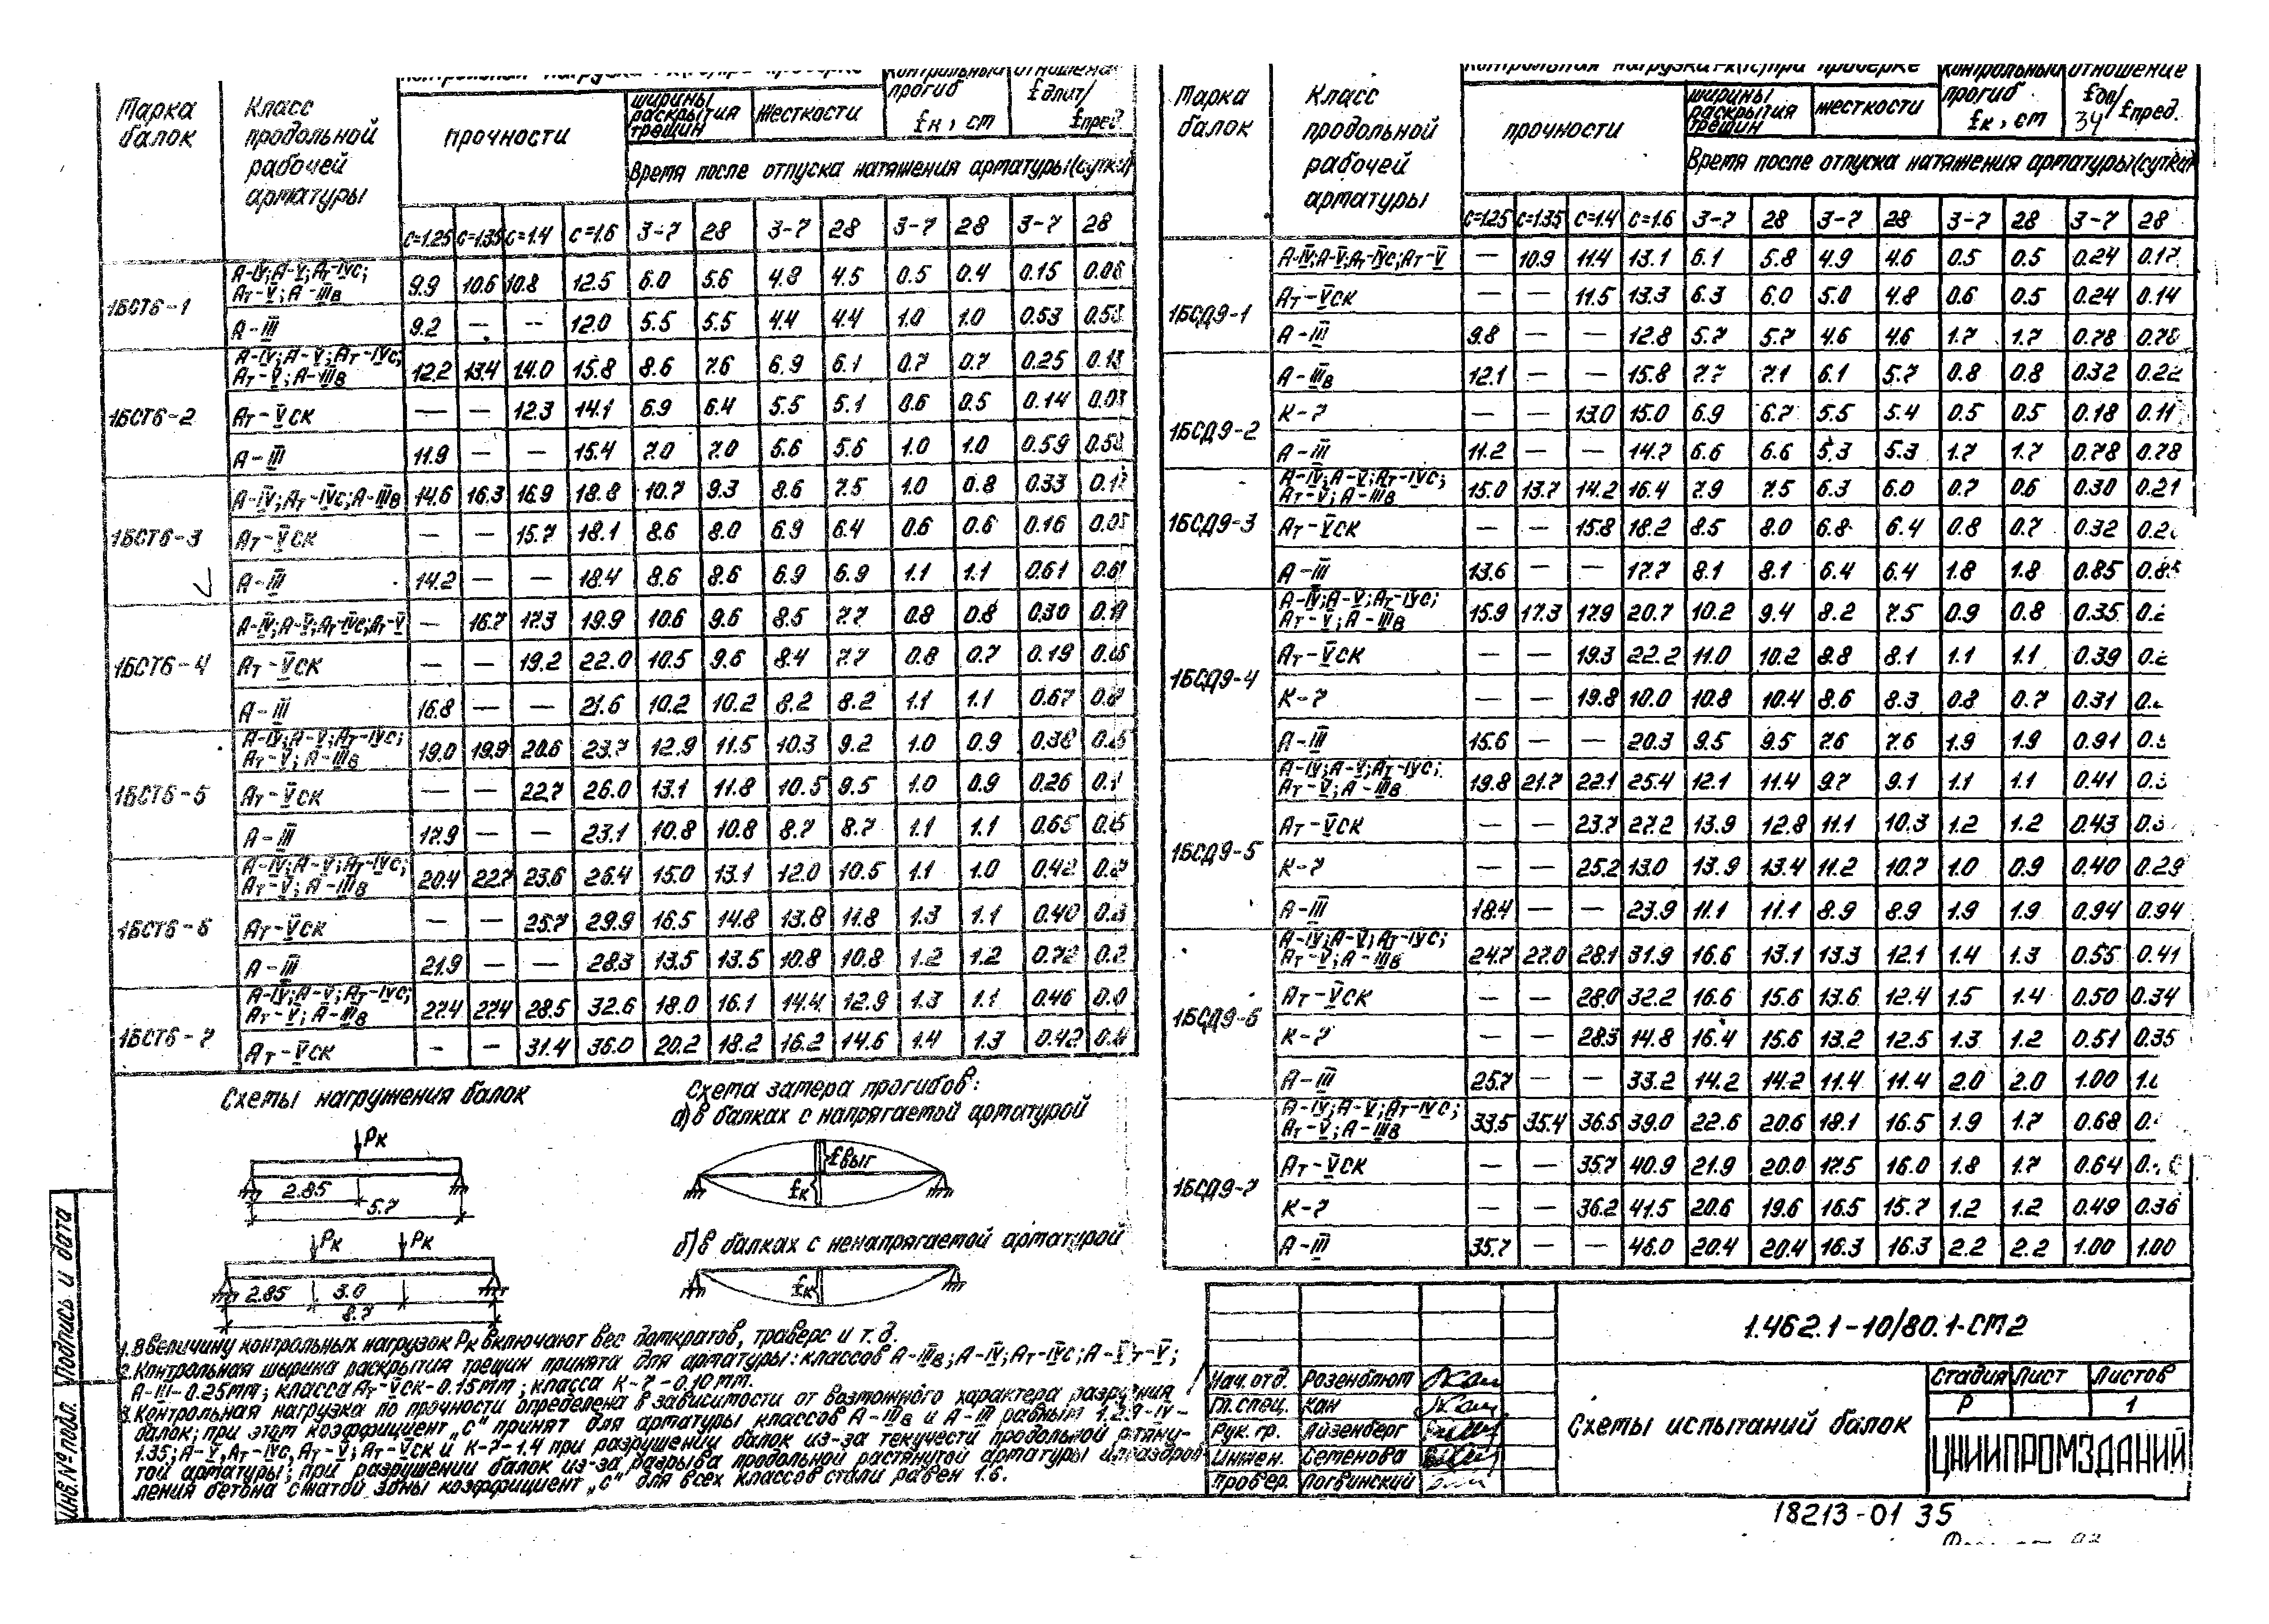 Марка балок | Класс продольной рабочей арматуры | прочности | ширины раскрытия трещин | жесткости | Контрольный прогиб fк, см | отношение fдлит/fпред.
Время после отпуска натяжения арматуры (сутки)
c=1.25 | c=1.35 | c=1.4 | c=1.6 | 3-7 | 28 | 3-7 | 28 | 3-7 | 28 | 3-7 | 28
1БСТ6-1
А-IV; А-V; Ат-IVс; Ат-V; А-IIIв 9.9 10.6 10.8 12.5 6.0 5.6 4.8 4.5 0.5 0.4 0.15
А-III 9.2 — -- 12.0 5.5 5.5 4.4 4.4 1.0 1.0 0.53
1БСТ6-2
А-IV; А-V; Ат-IVс; Ат-V; А-IIIв 12.2 13.4 14.0 15.8 8.6 7.6 6.9 6.1 0.7 0.7 0.25
Ат-Vск — — 12.3 14.1 6.9 6.4 5.5 5.1 0.6 0.5 0.14
А-III 11.9 — — 15.4 7.0 7.0 5.6 5.6 1.0 1.0 0.59
1БСТ6-3
А-IV; Ат-IVс; А-IIIв 14.6 16.3 16.9 18.8 10.7 9.3 8.6 7.5 1.0 0.8 0.33
Ат-Vск — — 15.7 18.1 8.6 8.0 6.9 6.4 0.6 0.6 0.16
А-III 14.2 — — 18.4 8.6 8.6 6.9 6.9 1.1 1.1 0.61 0.61
1БСТ6-4
А-IV; А-V; Ат-IVс; Ат-V — 16.7 17.3 19.9 10.6 9.6 8.5 7.7 0.8 0.8 0.30
Ат-Vск — — 19.2 22.0 10.5 9.6 8.4 7.7 0.8 0.7 0.19
А-III 16.8 — — 21.6 10.2 10.2 8.2 8.2 1.1 1.1 0.67
1БСТ6-5
А-IV; А-V; Ат-IVс; Ат-V; А-IIIв 19.0 19.9 20.6 23.7 12.9 11.5 10.3 9.2 1.0 0.9 0.38
Ат-Vск — — 22.7 26.0 13.1 11.8 10.5 9.5 1.0 0.9 0.26
А-III 17.9 — — 23.1 10.8 10.8 8.7 8.7 1.1 1.1 0.65
1БСТ6-6
А-IV; А-V; Ат-IVс; Ат-V; А-IIIв 20.4 22.7 23.6 26.4 15.0 13.1 12.0 10.5 1.1 1.0 0.42
Ат-Vск — — 25.7 29.9 16.5 14.8 13.8 11.8 1.3 1.1 0.40
А-III 21.9 — — 28.3 13.5 13.5 10.8 10.8 1.2 1.2 0.72
1БСТ6-7
А-IV; А-V; Ат-IVс; Ат-V; А-IIIв 27.4 27.4 28.5 32.6 18.0 16.1 14.4 12.9 1.3 1.1 0.46
Ат-Vск - — 31.4 36.0 20.2 18.2 16.2 14.6 1.4 1.3 0.42
Схемы нагружения балок
Рк
2.85
5.7
Рк Рк
2.85 3.0
8.7
Схема замера прогибов:
а) в балках с напрягаемой арматурой
fвыг
fк
б) в балках с ненапрягаемой арматурой
fк
1. В величину контрольных нагрузок Рк включают вес домкратов, траверс и т.д.
2. Контрольная ширина раскрытия трещин принята для арматуры: классов А-IIIв; А-IV; Ат-IVс; А-V т-V;
А-III-0.25мм; класса Ат-Vск-0.15мм; класса К-7-0.10мм.
3. Контрольная нагрузка по прочности определена в зависимости от возможного характера разрушения
балок; при этом коэффициент „с" принят для арматуры классов А-IIIв и А-III равным
1.35; А-V, Ат-IVс, Ат-V; Ат-Vск и К-7-1.4 при разрушении балок из-за текучести продольной растяну-
той арматуры; при разрушении балок из-за разрыва продольной растянутой арматуры или раздроб
ления бетона сжатой зоны коэффициент „с" для всех классов стали равен 1.6.
Марка балок | Класс продольной рабочей арматуры | прочности | ширины раскрытия трещин | жесткости | Контрольный прогиб fк, см | отношение fдл/fпред.
34
Время после отпуска натяжения арматуры (сутки
c=1.25 | c=1.35 | c=1.4 | c=1.6 | 3-7 | 28 | 3-7 | 28 | 3-7 | 28 | 3-7 | 28
1БСД9-1
А-IV; А-V; Ат-IVс; Ат-V — 10.9 11.4 13.1 6.1 5.8 4.9 4.6 0.5 0.5 0.24 0.17
Ат-Vск — — 11.5 13.3 6.3 6.0 5.0 4.8 0.6 0.5 0.24 0.14
А-III 9.8 — — 12.8 5.7 5.7 4.6 4.6 1.7 1.7 0.78 0.78
1БСД9-2
А-IIIв 12.1 — — 15.8 7.7 7.1 6.1 5.7 0.8 0.8 0.32 0.22
К-7 — — 13.0 15.0 6.9 6.7 5.5 5.4 0.5 0.5 0.18 0.11
А-III 11.2 — — 14.7 6.6 6.6 5.3 5.3 1.7 1.7 0.78 0.78
1БСД9-3
А-IV; А-V; Ат-IVс; Ат-V; А-IIIв 15.0 13.7 14.2 16.4 7.9 7.5 6.3 6.0 0.7 0.6 0.30 0.21
Ат-Vск — — 15.8 18.2 8.5 8.0 6.8 6.4 0.8 0.7 0.32 0.2
А-III 13.6 — — 17.7 8.1 8.1 6.4 6.4 1.8 1.8 0.85 0.85
1БСД9-4
А-IV; А-V; Ат-IVс; Ат-V; А-IIIв 15.9 17.3 17.9 20.7 10.2 9.4 8.2 7.5 0.9 0.8 0.35 0.2
Ат-Vск — — 19.3 22.2 11.0 10.2 8.8 8.1 1.1 1.1 0.39 0.2
К-7 — — 19.8 10.0 10.8 10.4 8.6 8.3 0.8 0.7 0.31 0.
А-III 15.6 — — 20.3 9.5 9.5 7.6 7.6 1.9 1.9 0.91
1БСД9-5
А-IV; А-V; Ат-IVс; Ат-V; А-IIIв 19.8 21.7 22.1 25.4 12.1 11.4 9.7 9.1 1.1 1.1 0.41 0.3
Ат-Vск — — 23.7 27.2 13.9 12.8 11.1 10.3 1.2 1.2 0.43 0.3
К-7 — — 25.2 13.0 13.9 13.4 11.2 10.7 1.0 0.9 0.40 0.29
А-III 18.4 — — 23.9 11.1 11.1 8.9 8.9 1.9 1.9 0.94 0.94
1БСД9-6
А-IV; А-V; Ат-IVс; Ат-V; А-IIIв 24.7 27.0 28.1 31.9 16.6 13.1 13.3 12.1 1.4 1.3 0.55 0.41
Ат-Vск — — 28.0 32.2 16.6 15.6 13.6 12.4 1.5 1.4 0.50 0.34
К-7 — — 28.3 14.8 16.4 15.6 13.2 12.5 1.3 1.2 0.51 0.35
А-III 25.7 — — 33.2 14.2 14.2 11.4 11.4 2.0 2.0 1.00
1БСД9-7
А-IV; А-V; Ат-IVс; Ат-V; А-IIIв 33.5 35.4 36.5 39.0 22.6 20.6 18.1 16.5 1.9 1.7 0.68
Ат-Vск — — 35.7 40.9 21.9 20.0 17.5 16.0 1.8 1.7 0.64
К-7 — — 36.2 41.5 20.6 19.6 16.5 15.7 1.2 1.2 0.49 0.36
А-III 35.7 — — 46.0 20.4 20.4 16.3 16.3 2.2 2.2 1.00 1.00
1.462.1-10/80.1-СМ2
Нач.отд. Розенблюм
Гл.спец. Кан
Рук. гр. Айзенберг
Инжен. Семенова
Провер. Логвинский
Схемы испытаний балок
Стадия Лист Листов
Р 1
ЦНИИПРОМЗДАНИЙ
18213-01 35
Подпись и дата
Инв.№ подл.